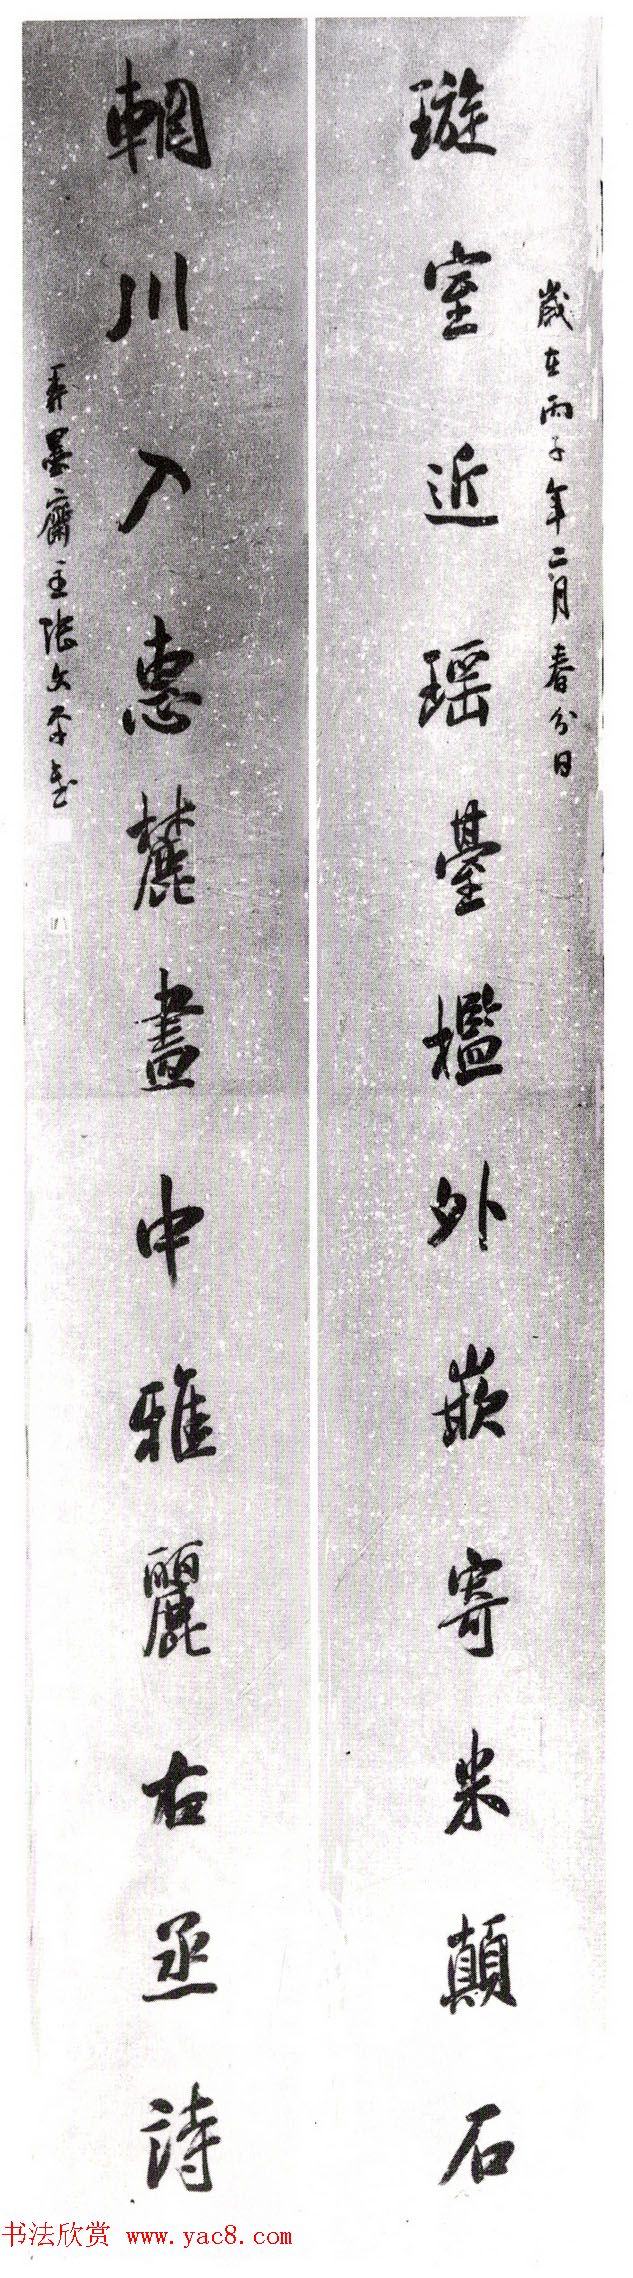 歲在丙子年二月春分日
璇室近瑶臺檻外嵌寄米顛石
輞川入惠麓畫中雅麗右丞詩
墨齋主張文
书法欣赏 www.yac8.com